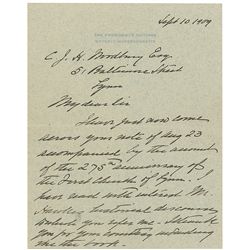 Sept 10. 1909
THE PRESIDENT'S COTTAGE
BEVERLY, MASSACHUSETTS
C. J. H. Woodbury Esq
51 Baltimore Street
Lynn
My dear Sir
I have just now come
across your note of Aug 23
accompanied by the account
of the 275th anniversary of
the First Church of Lynn. I
have read with interest Mr.
historical discourse
which you take me. I thank
you for your courtesy in sending
me the book.